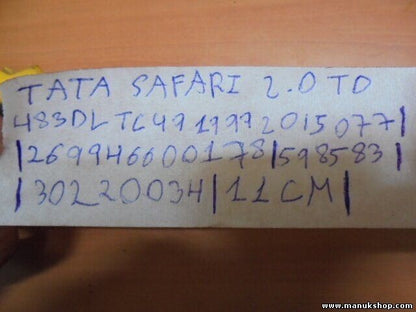 TATA SAFARI 2.0 TD
483DLTC49 1999 2015077|
|269946600178|598583|
|30220034|11CM|
www.manukshop.com